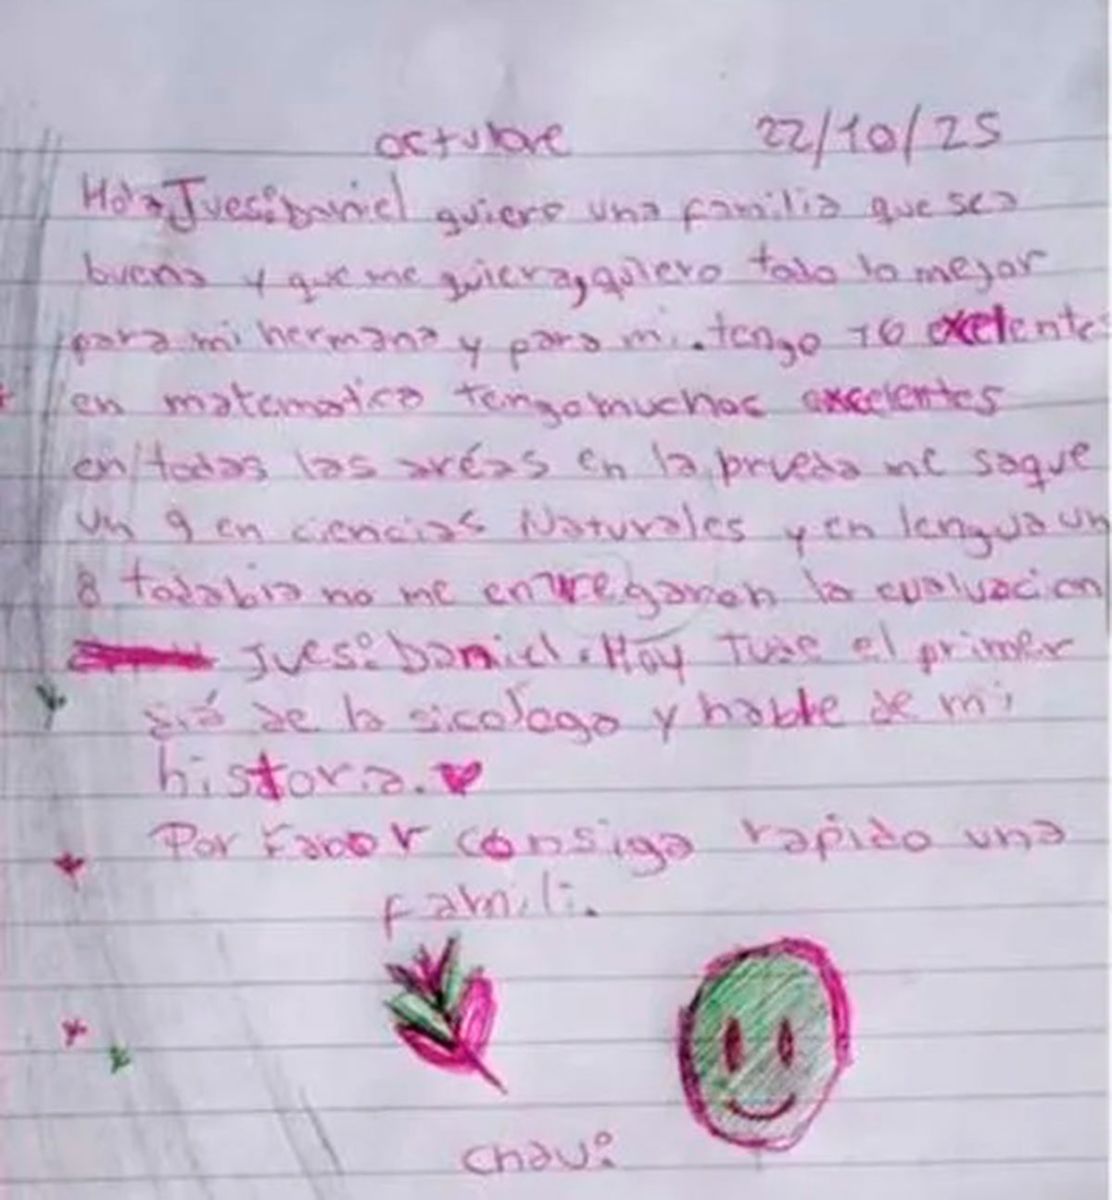 octubre 22/10/25
Hola Jues: Daniel quiero una familia que sea
buena y que me quiera, quiero todo lo mejor
para mi hermana y para mi. tengo 10 exelente
en matematica tengo muchos excelentes
en todas las aréas en la prueba me saque
un 9 en ciencias Naturales y en lengua un
8 todabia no me entregaron la evaluacion
Jues: Daniel. Hoy Tube el primer
diá de la sicologo y hable de mi
historia.
Por Fabor consiga rapido una
famili.
chau: